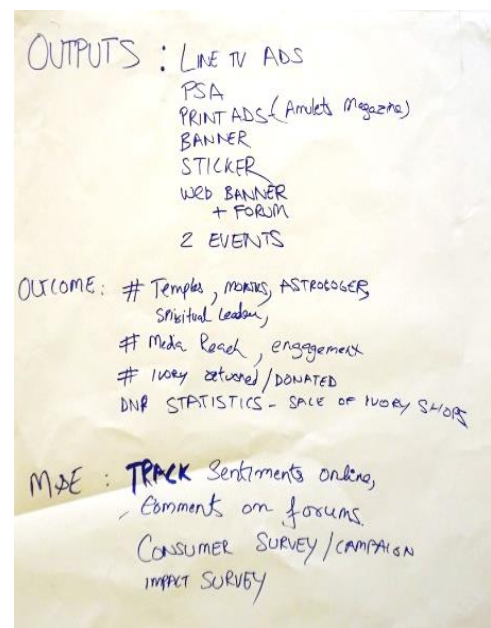 OUTPUTS : LINE TV ADS
PSA
PRINT ADS - (Amulets Magazine)
BANNER
STICKER
WEB BANNER
+ FORUM
2 EVENTS
OUTCOME: # Temples, MONKS, ASTROLOGER,
Spiritual Leaders,
# Media Reach, engagement
# Ivory returned/DONATED
DNP STATISTICS - SALE OF IVORY SHOPS
M&E : TRACK Sentiments online,
Comments on forums.
CONSUMER SURVEY/CAMPAIGN
IMPACT SURVEY